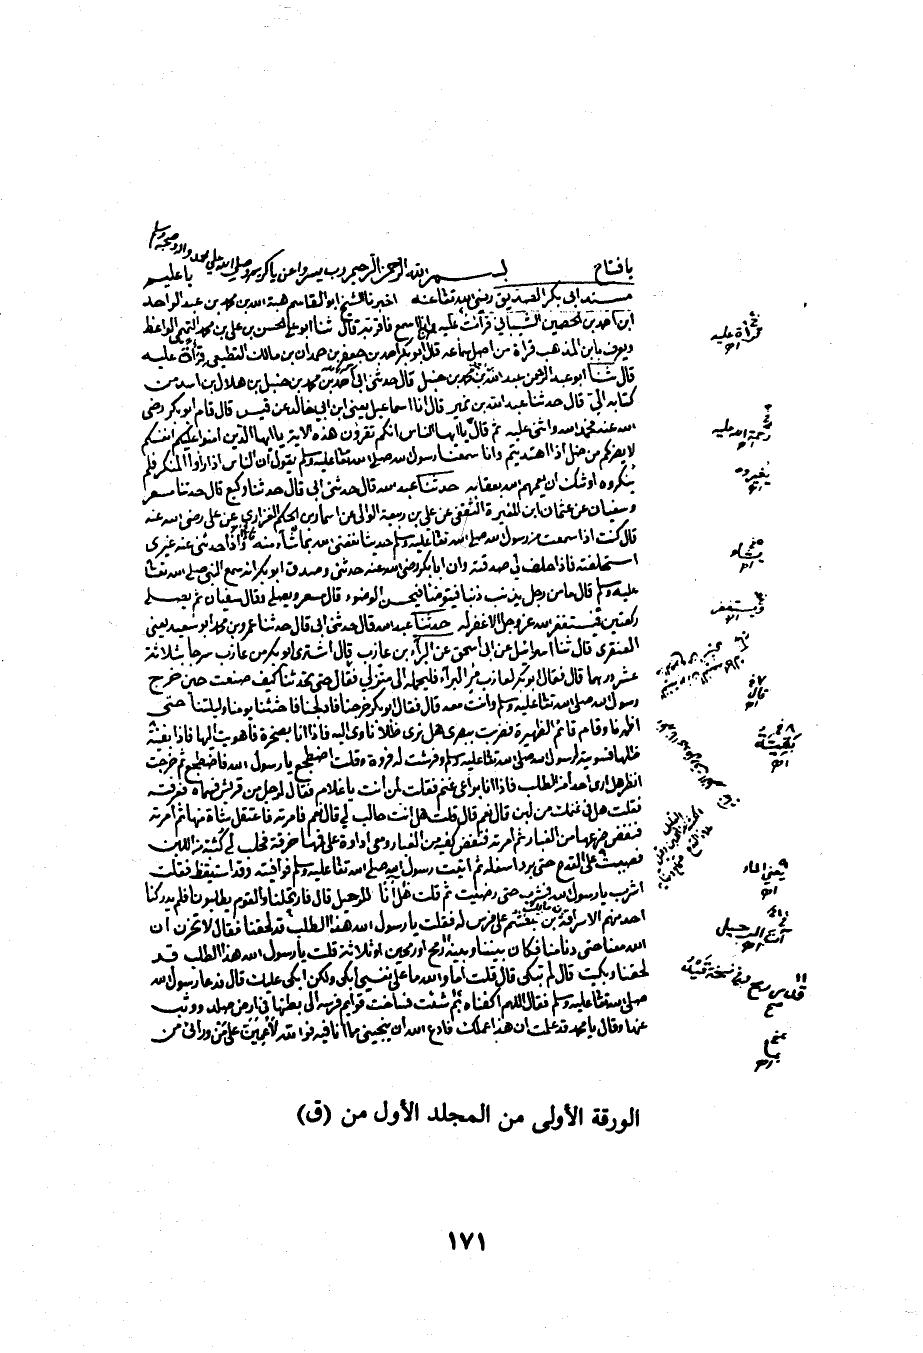 يا فتاح بسم الله الرحمن الرحيم رب يسر واعن يا كريم وصلى الله على محمد واله وصحبه وسلم يا عليم
مسند ابى بكر الصديق رضى الله تعالى عنه اخبرنا الشيخ ابو القاسم هبة الله بن محمد بن عبد الواحد
ابن احمد بن الحصين الشيبانى قرأت عليه وانا اسمع فاقر به قال ثنا ابو على الحسن بن على بن محمد التميمى الواعظ
ويعرف بابن المذهب قراة من اصل سماعه قال ابو بكر احمد بن جعفر بن حمدان بن مالك القطيعى قرأة عليه
قال ثنا ابو عبد الرحمن عبد الله بن احمد بن محمد بن حنبل قال حدثنى ابى احمد بن محمد بن حنبل بن هلال بن اسد من
كتابه الى قال حدثنا عبد الله بن نمير قال انا اسماعيل يعنى ابن ابى خالد عن قيس قال قام ابو بكر رضى
الله عنه فحمد الله واثنى عليه ثم قال يا ايها الناس انكم تقرؤن هذه الاية يا ايها الذين امنوا عليكم انفسكم
لا يضركم من ضل اذا اهتديتم وانا سمعنا رسول الله صلى الله تعالى عليه وسلم يقول ان الناس اذا راوا المنكر فلم
ينكروه اوشك ان يعمهم الله بعقابه حدثنا عبد الله قال حدثنى ابى قال حدثنا وكيع قال حدثنا مسعر
وسفيان عن عثمان ابن المغيرة الثقفى عن على بن ربيعة الوالى عن اسما بن الحكم الفزارى عن على رضى الله عنه
قال كنت اذا سمعت من رسول الله صلى الله تعالى عليه وسلم حديثا نفعنى الله بما شاء منه واذا حدثنى عنه غيرى
استحلفته فاذا حلف لى صدقته وان ابا بكر رضى الله عنه حدثنى وصدق ابو بكر انه سمع النبى صلى الله تعالى
عليه وسلم قال ما من رجل يذنب ذنبا فيتوضا فيحسن الوضوء قال مسعر ويصلى وقال سفيان ثم يصلى
ركعتين فيستغفر الله عز وجل الا غفر له حدثنا عبد الله قال حدثنى ابى قال حدثنا عمرو بن محمد ابو سعيد يعنى
العنقزى قال ثنا اسرائيل عن ابى اسحق عن البرآء بن عازب قال اشترى ابو بكر من عازب سرجا بثلاثة
عشر درهما قال فقال ابو بكر لعازب مر البراء فليحمله الى منزلى فقال لا حتى تحدثنا كيف صنعت حين خرج
رسول الله صلى الله تعالى عليه وسلم وانت معه قال فقال ابو بكر خرجنا فادلجنا فاحثثنا يومنا وليلتنا حتى
اظهرنا وقام قائم الظهيرة فضربت ببصرى هل نرى ظلا نأوى اليه فاذا انا بصخرة فاهويت اليها فاذا بقية
ظلها فسويته لرسول الله صلى الله تعالى عليه وسلم وفرشت له فروة وقلت اضطجع يا رسول الله فاضطجع ثم خرجت
انظر هل ارى احدا من الطلب فاذا انا براعى غنم فقلت لمن أنت يا غلام فقال لرجل من قريش فسماه فعرفته
فقلت هل فى غنمك من لبن قال نعم قال قلت هل انت حالب لى قال نعم فامرته فاعتقل شاة منها ثم امرته
فنفض ضرعها من الغبار ثم امرته فنفض كفيه من الغبار ومعى اداوة على فمها خرقة فحلب لى كثبة من اللبن
فصببت على القدح حتى برد اسفله ثم اتيت رسول الله صلى الله تعالى عليه وسلم فوافيته وقد استيقظ فقلت
اشرب يا رسول الله فشرب حتى رضيت ثم قلت هل آنا للرحيل قال فارتحلنا والقوم يطلبونا فلم يدركنا
احد منهم الا سراقة بن مالك بن جعشم على فرس له فقلت يا رسول الله هذا الطلب قد لحقنا فقال لا تحزن ان
الله معنا حتى دنا منا فكان بيننا وبينه رمح او رمحين او ثلاثة قلت يا رسول الله هذا الطلب قد
لحقنا وبكيت قال لم تبكى قال قلت اما والله ما على نفسى ابكى ولكن ابكى عليك قال فدعا رسول الله
صلى الله تعالى عليه وسلم فقال اللهم اكفناه بم شئت فساخت قوايم فرسه الى بطنها فى ارض صلد ووثب
عنها وقال يا محمد قد علمت ان هذا عملك فادع الله ان ينجينى مما انا فيه فو الله لأعمين على من ورائى من
قرأة عليه
رحمة الله عليه
يغيروه
بما شاء
ويستغفر
قال
بقية
يعنى الماء
الرحيل
قدر رمح وفى نسخة قيد
مما
الورقة الأولى من المجلد الأول من (ق)
١٧١